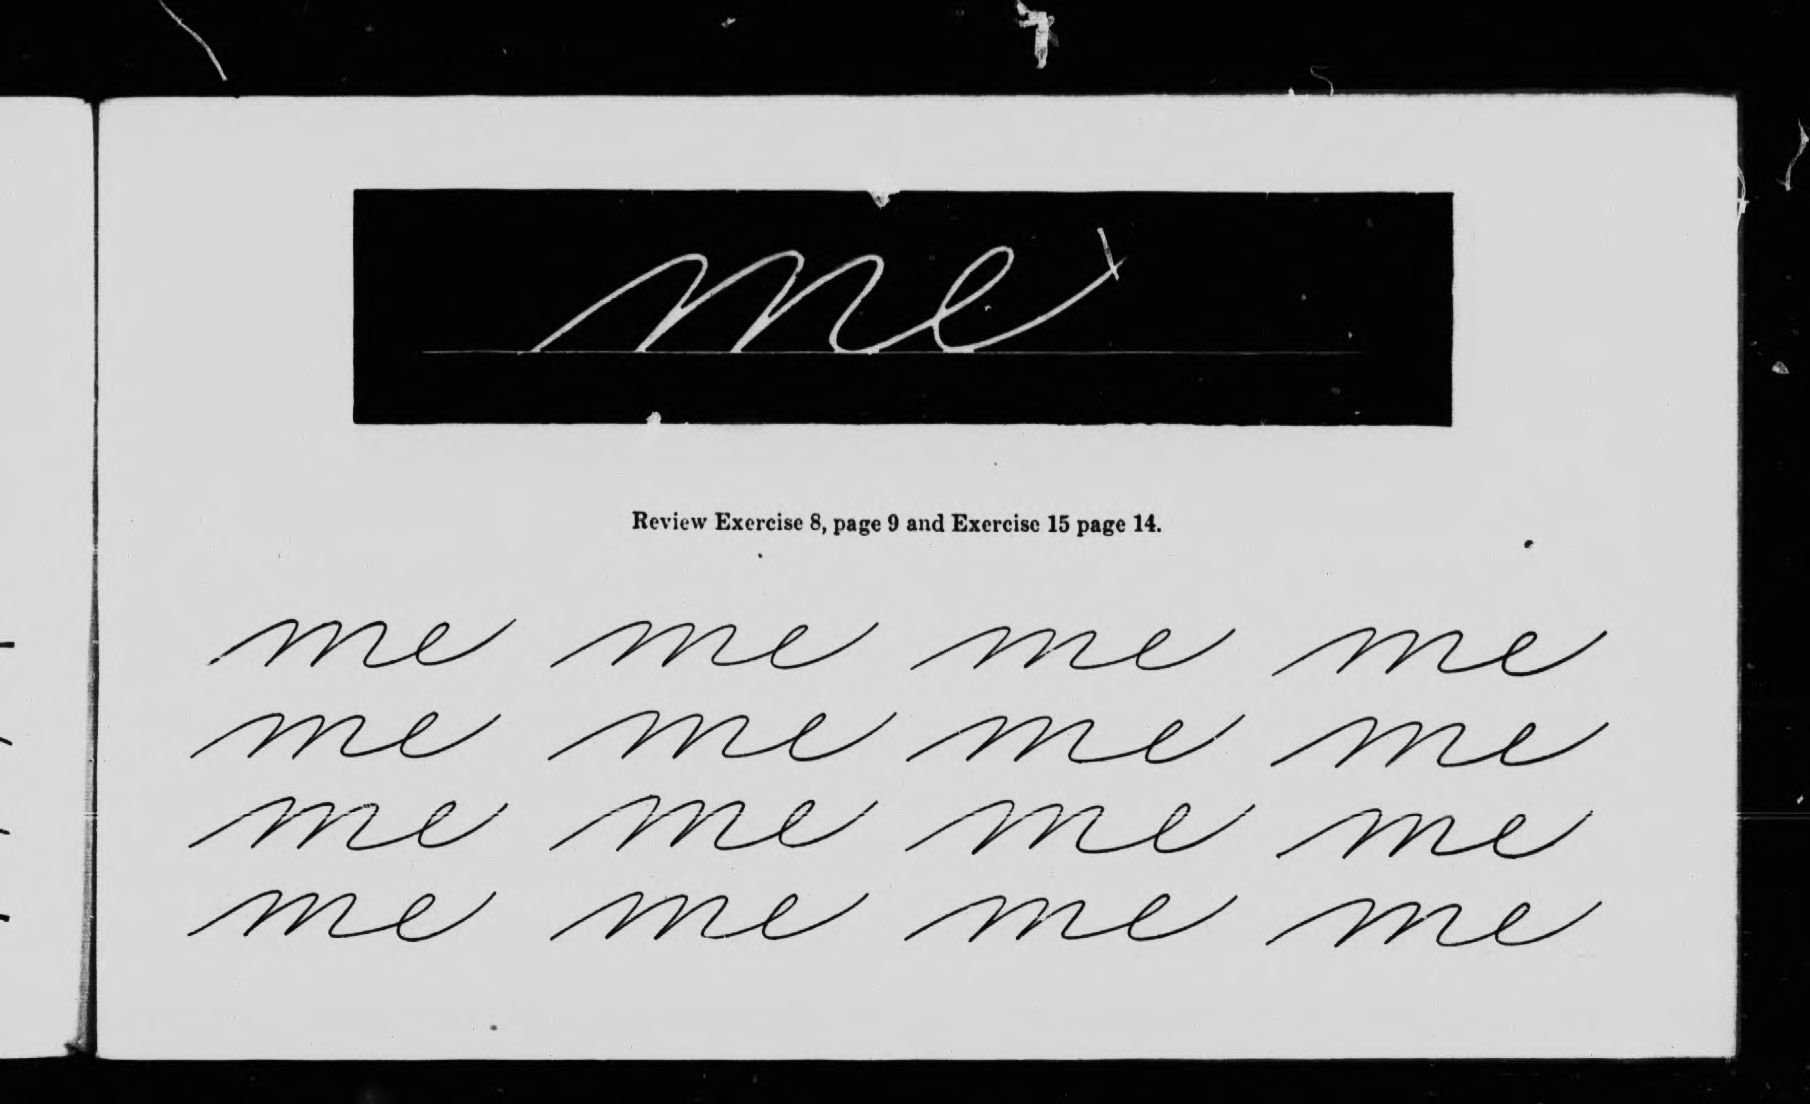 me
Review Exercise 8, page 9 and Exercise 15 page 14.
me me me me
me me me me
me me me me
me me me me